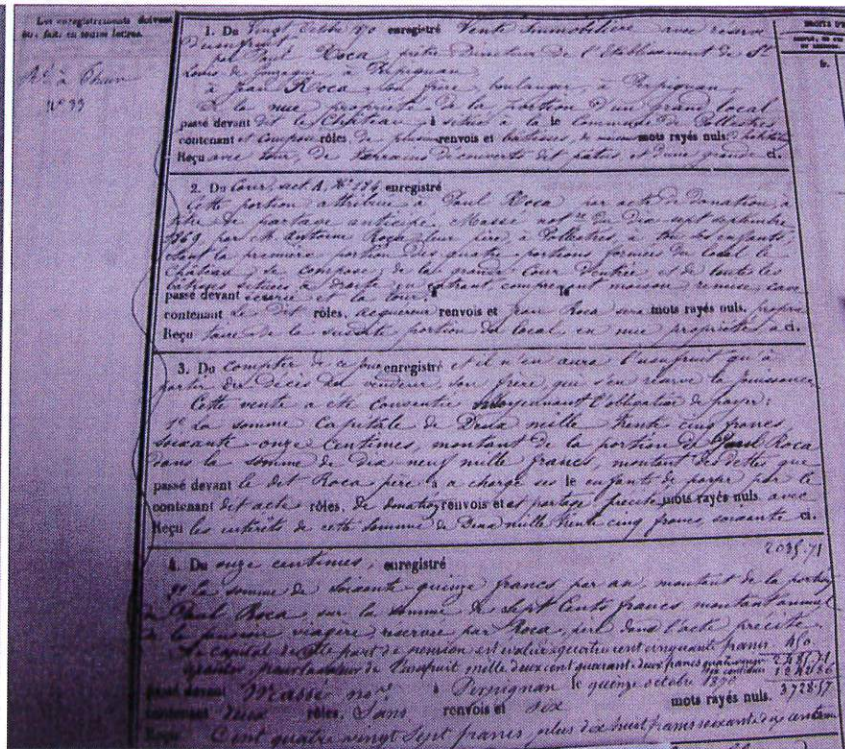 Les enregistrements doivent
être faits en toutes lettres.
Rd à Thuir
N° 33
1. Du Vingt octobre 1870 enregistré Vente Immobilière avec réserve
d'usufruit
par Paul Roca, prêtre Directeur de l'Etablissement de St
Louis de Gonzague, à Perpignan
à Jean Roca, son frère boulanger, à Perpignan,
De la nue propriété de la portion d'un grand local
passé devant dit le Château à située à la le Commune de Pollestres
contenant et Composée rôles, de plusieurs renvois et batisses, de mots rayés nuls.
Reçu avec tour, de terrains découverts dit patus et d'une grande ci.
2. Du Cour, sect A, N° 526 enregistré
Cette portion attribuée à Paul Roca par acte de Donation, à
titre de partage anticipé, Massé notre du Dix sept septembre
1769 par M. Antoine Roca leur père, à Pollestres, à ses enfants,
étant la première portion des quatre portions formées du local le
Château, se compose, de la grande Cour d'entrée et de toutes les
batisses situées à droite en entrant, comprenant maison, remise, cave
passé devant écurie et la tour. à le
contenant Le dit rôles, acquéreur renvois et Jean Roca sera mots rayés nuls. proprié
Reçu taire de la susdite portion du local, en nue propriété à ci.
3. Du compter de ce jour enregistré et il n'en aura l'usufruit qu'à
partir du décès du vendeur, son frère, qui s'en réserve la jouissance.
Cette vente a été consentie moyennant l'obligation de payer:
1° la somme Capitale de Deux mille trente cinq francs,
soixante onze Centimes, montant de la portion de Paul Roca
dans la somme de Dix neuf mille francs, montant des dettes que
passé devant le dit Roca père à a chargé ses le enfants de payer par le
contenant dit acte rôles, de donation renvois et et partage précité mots rayés nuls. avec
Reçu les intérêts de cette somme de Deux mille trente cinq francs soixante ci.
2035.71
4. Du onze centimes, enregistré
2° la somme de Soixante quinze francs par an, montant de la portion
de Paul Roca sur la somme de Sept Cents francs, montant annuel
de la pension viagère réservée par Roca, père dans l'acte précité
Le capital de cette part de pension est évalué quatre cent cinquante francs 450
pour la valeur de l'usufruit mille deux cent quarante deux francs 2485.71
1242.86
passé devant Massé notre à Perpignan le quinze octobre 1870
3728.57
contenant deux rôles, Sans renvois et six mots rayés nuls.
Reçu Cent quatre vingt sept francs, plus dix huit francs soixante dix centimes